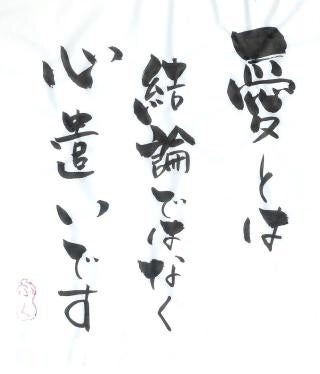 愛とは
結論ではなく
心遣いです